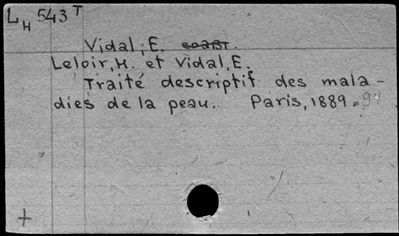 LH 543 T
Vidal, E.
Leloir, H. et Vidal, E.
Traité descriptif des mala-
dies de la peau. Paris, 1889-94
+